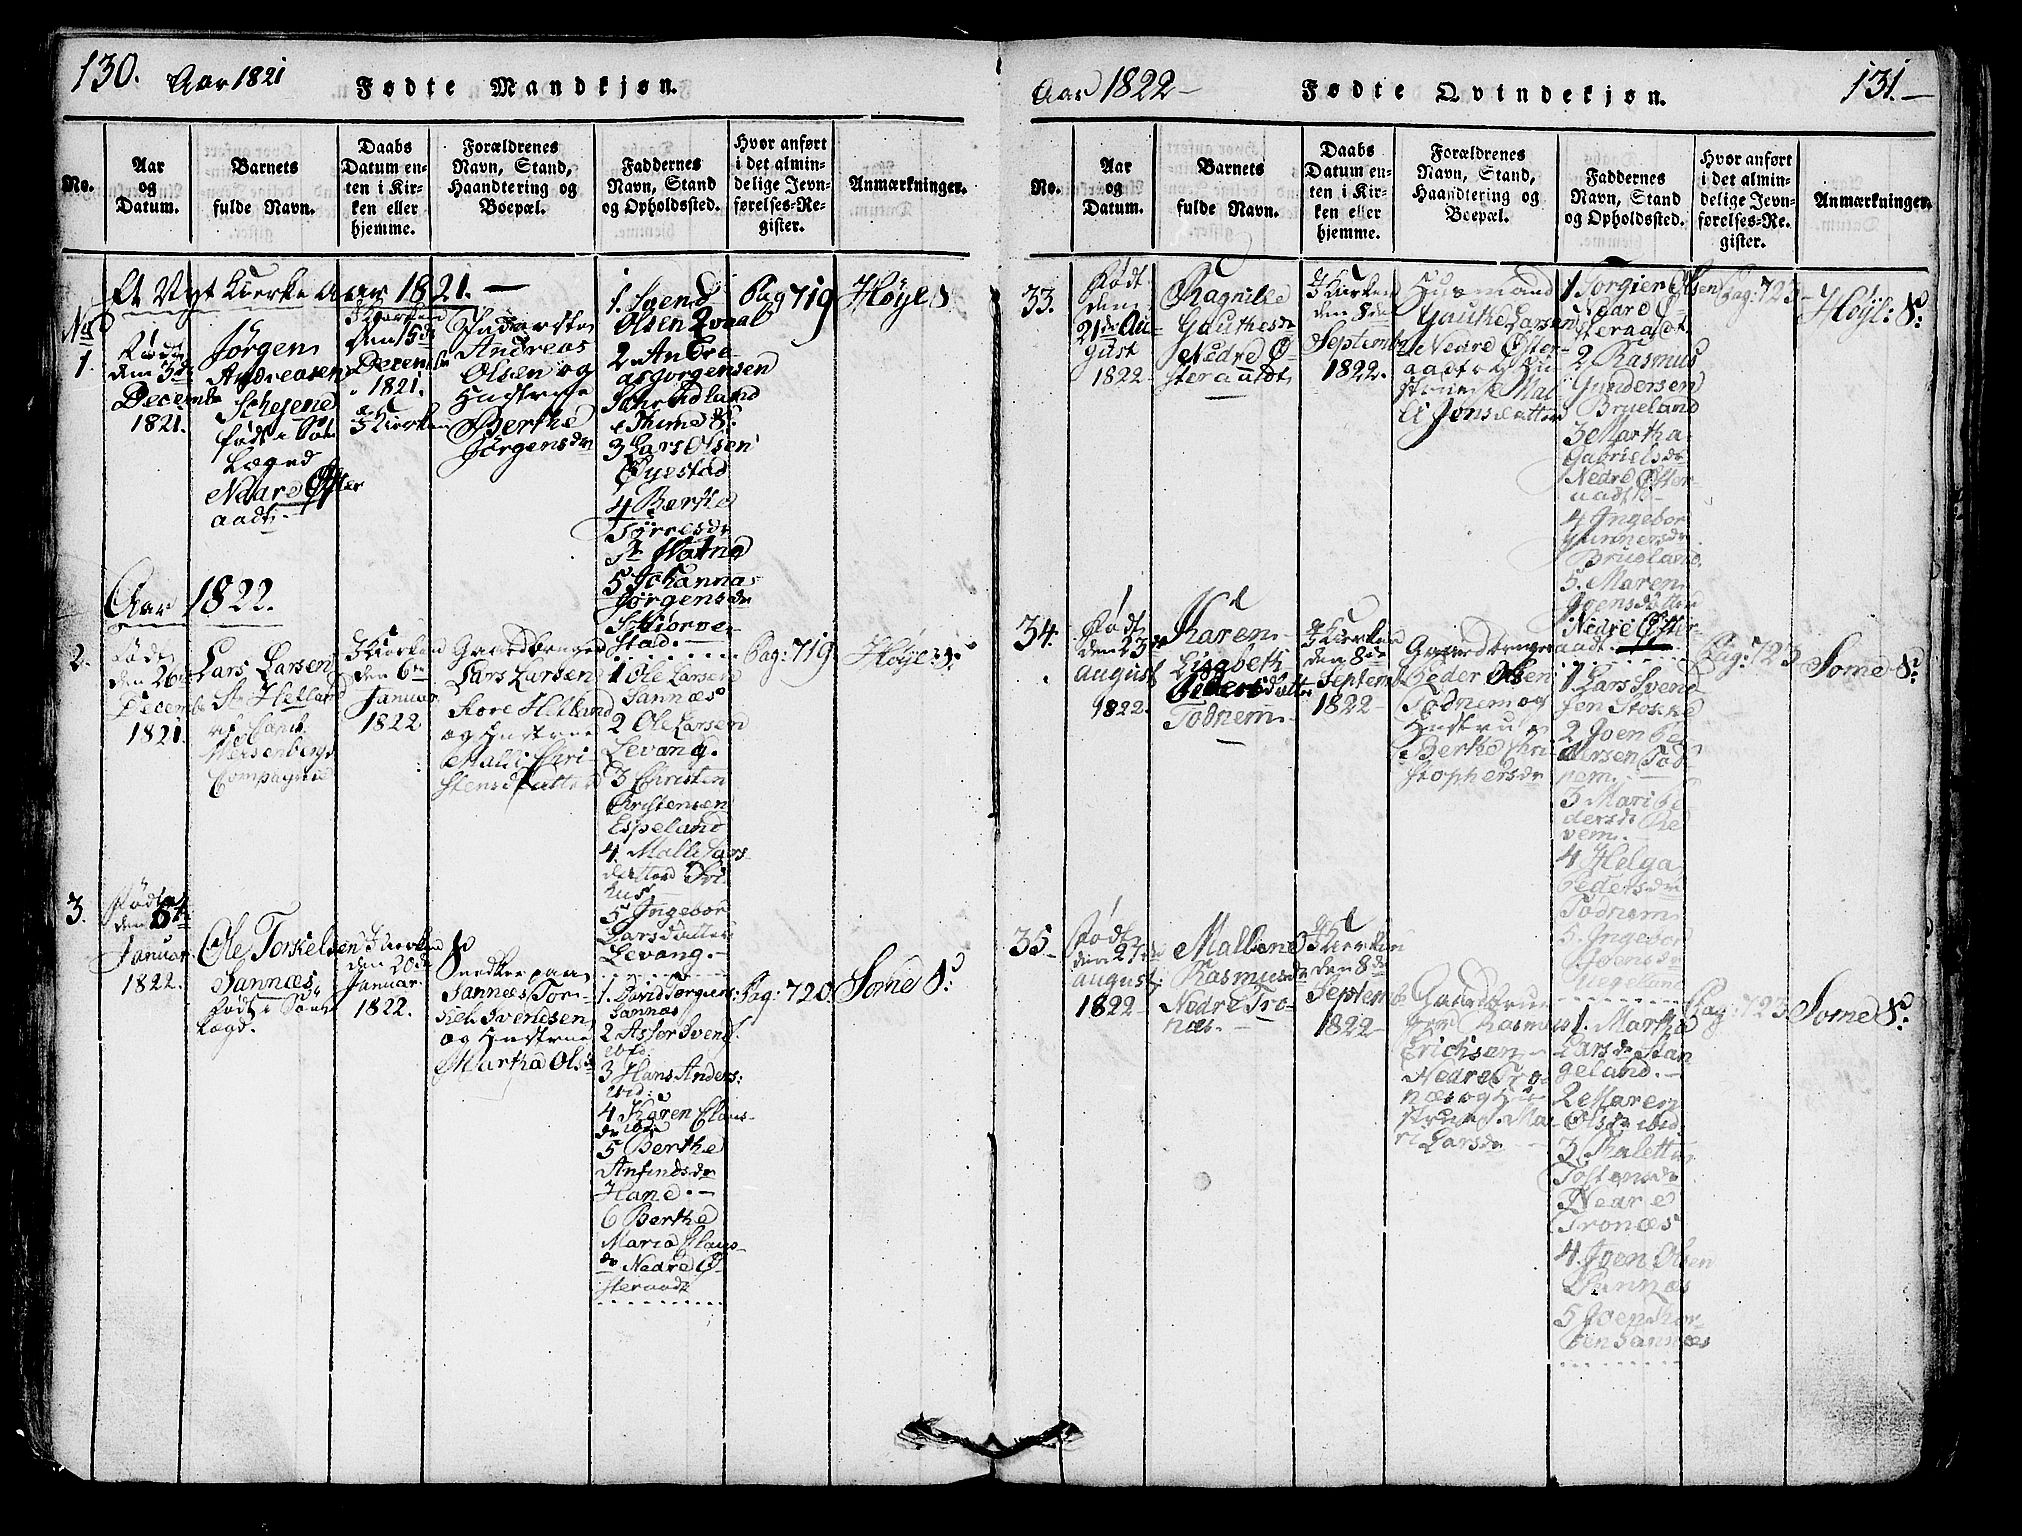 130.
Aar 1821
Fødte Mandkjøn.
No.
Aar
og
Datum.
Barnets
fulde Navn.
Daabs
Datum en-
ten i Kir-
ken eller
hjemme.
Forældrenes
Navn, Stand,
Haandtering og
Boepæl.
Faddernes
Navn, Stand
og Opholdssted.
Hvor anført
i det almin-
delige Jevn-
førelses-Re-
gister.
Anmærkninger.
Aar 1821.
1.
Født
den 3de
Decembr
1821.
Jørgen
Andreasen
født i
Lægd
Nedre Øster
aadt.
I Kierken
den 15de
Decembr
1821.
I Kierken
Andreas
Olsen og
Hustrue
Berthe
Jørgensdr
1. Svend
Olsen Qvaal
2 Andre-
as Jørgensen
3 Lars Olsen
Øyestad
4 Berthe
Hatna
5 Johanna
Jørgensdr
Skiorve-
stad.
Pag 719
Høyl S.
Aar 1822.
2.
Født
den 26de
Decembr
1821.
Lars Larsen
Helland
Compagnie
I Kierken
den 6te
Januar
1822
Gaardbruger
Lars Larsen
Store Helland
og Hustrue
Malli Chri-
stensdatter
1 Ole Larsen
Sannæs
2 Ole Larsen
Levang.
3 Christen
Christensen
Espeland
4. Malli Lars-
datter
5 Ingebor
Larsdatter
Levang.
Pag: 719
Høyl: S:
3.
Født
den 6te
Januar
1822.
Ole Torkelsen
Sannæs,
født i Sam
Lægd.
I Kierken
den 20de
Januar
1822.
Snedker paa
Sannæs Tor-
kel Svendsen,
og Hustrue
Martha Olsdr
1. David Jørgens:
Sannæs
2 Assor Svends.
ibid.
3 Hans Anders:
ibid:
4 Karen Claus-
dr ibid
5 Berthe
Anfindsdr
Hane.
6 Berthe
Maria Claus-
dr Nedre Ø-
steraadt
Pag: 720.
Some S:
Aar 1822
Fødte Qvindekjøn.
131.
No.
Aar
og
Datum.
Barnets
fulde Navn.
Daabs
Datum en-
ten i Kir-
ken eller
hjemme.
Forældrenes
Navn, Stand,
Haandtering og
Boepæl.
Faddernes
Navn, Stand
og Opholdssted.
Hvor anført
i det almin-
delige Jevn-
førelses-Re-
gister.
Anmærkninger.
33.
Født
den
21de Au-
gust
1822
Ragnilde
Gauthesdr
Nedre Ø-
steraadt
I Kierken
den 8de
Septembr
1822.
Husmand
Gauthe Larsen
Nedre Øster-
aadt og Hu-
strue Mal
li Jonsdatter
1 Jorgier Olsen
Nedre Ø-
steraadt
2 Rasmus
Gundersen
Brueland
3 Martha
Gabrielsdr
Nedre Øster-
aadt
4 Ingebor
Gunnersdr
Brueland
5. Maren
Joensdatter
Nedre Øster-
aadt.
Pag: 723
Høyl: S:
34.
Født
den 23de
August
1822.
Karen
Lisabeth
Pedersdatter
Todnem
I Kierken
den 8de
Septembr
1822
Gaardbruger
Peder Olsen
Todnem og
Hustrue
Berthe Chri-
stophersdr
1 Lars Svend
sen Stokke
2 Joen Pe-
dersen Tod
nem.
3 Mari Pe-
dersdr Re
vem.
4 Helga
Pedersdr
Todnem
5. Ingebor
Joensdr
Riegeland
Pag: 723
Some S:
35.
Født
den 27de
August
1822
Malbene
Rasmusdr
Nedre Tro-
næs.
I Kierken
den 8de
Septembr
1822
Gaardbru-
ger Rasmus
Erichsen
Nedre Tro-
næs og Hu-
strue Ma-
ri Larsdr
1. Martha
Larsdr Stan
geland.
2 Maren
Olsdr ibid
3 Malette
Tostensdr
Nedre
Tronæs
4. Joen Olsen
Sannæs
5 Joen Thor-
sen Sannæs
Pag: 723
Some S: